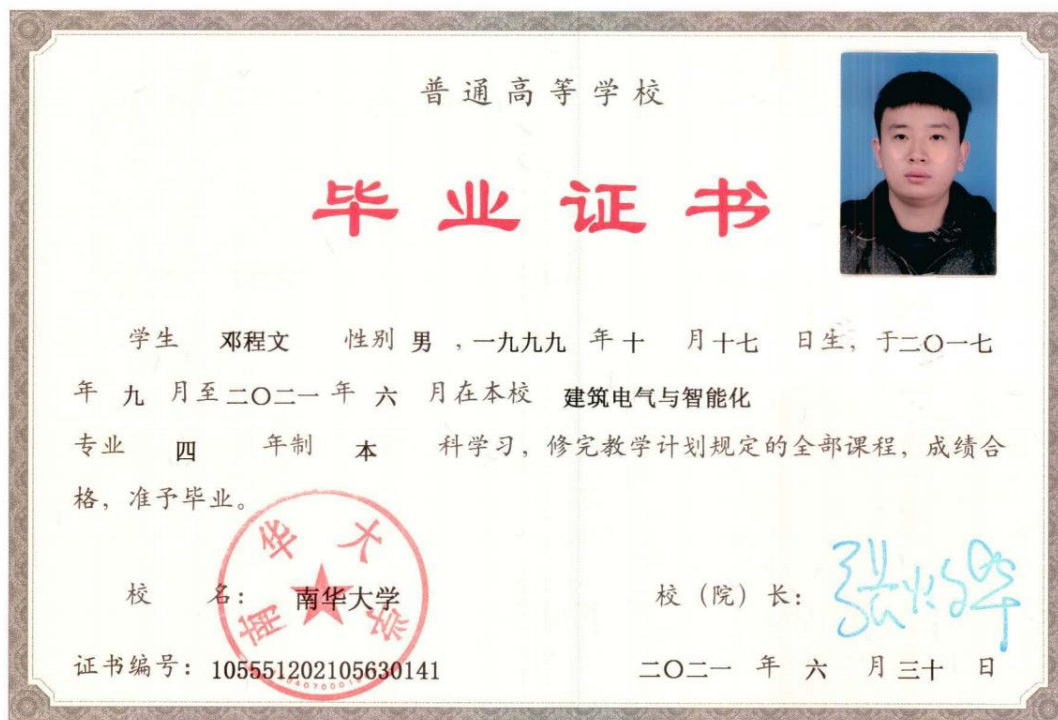 普通高等学校
毕业证书
学生 邓程文 性别 男 ，一九九九 年 十 月 十七 日生，于二〇一七
年 九 月至 二〇二一 年 六 月在本校 建筑电气与智能化
专业 四 年制 本 科学习，修完教学计划规定的全部课程，成绩合
格，准予毕业。
南华大学
校 名： 南华大学 校（院）长：
证书编号：105551202105630141 二〇二一 年 六 月 三十 日